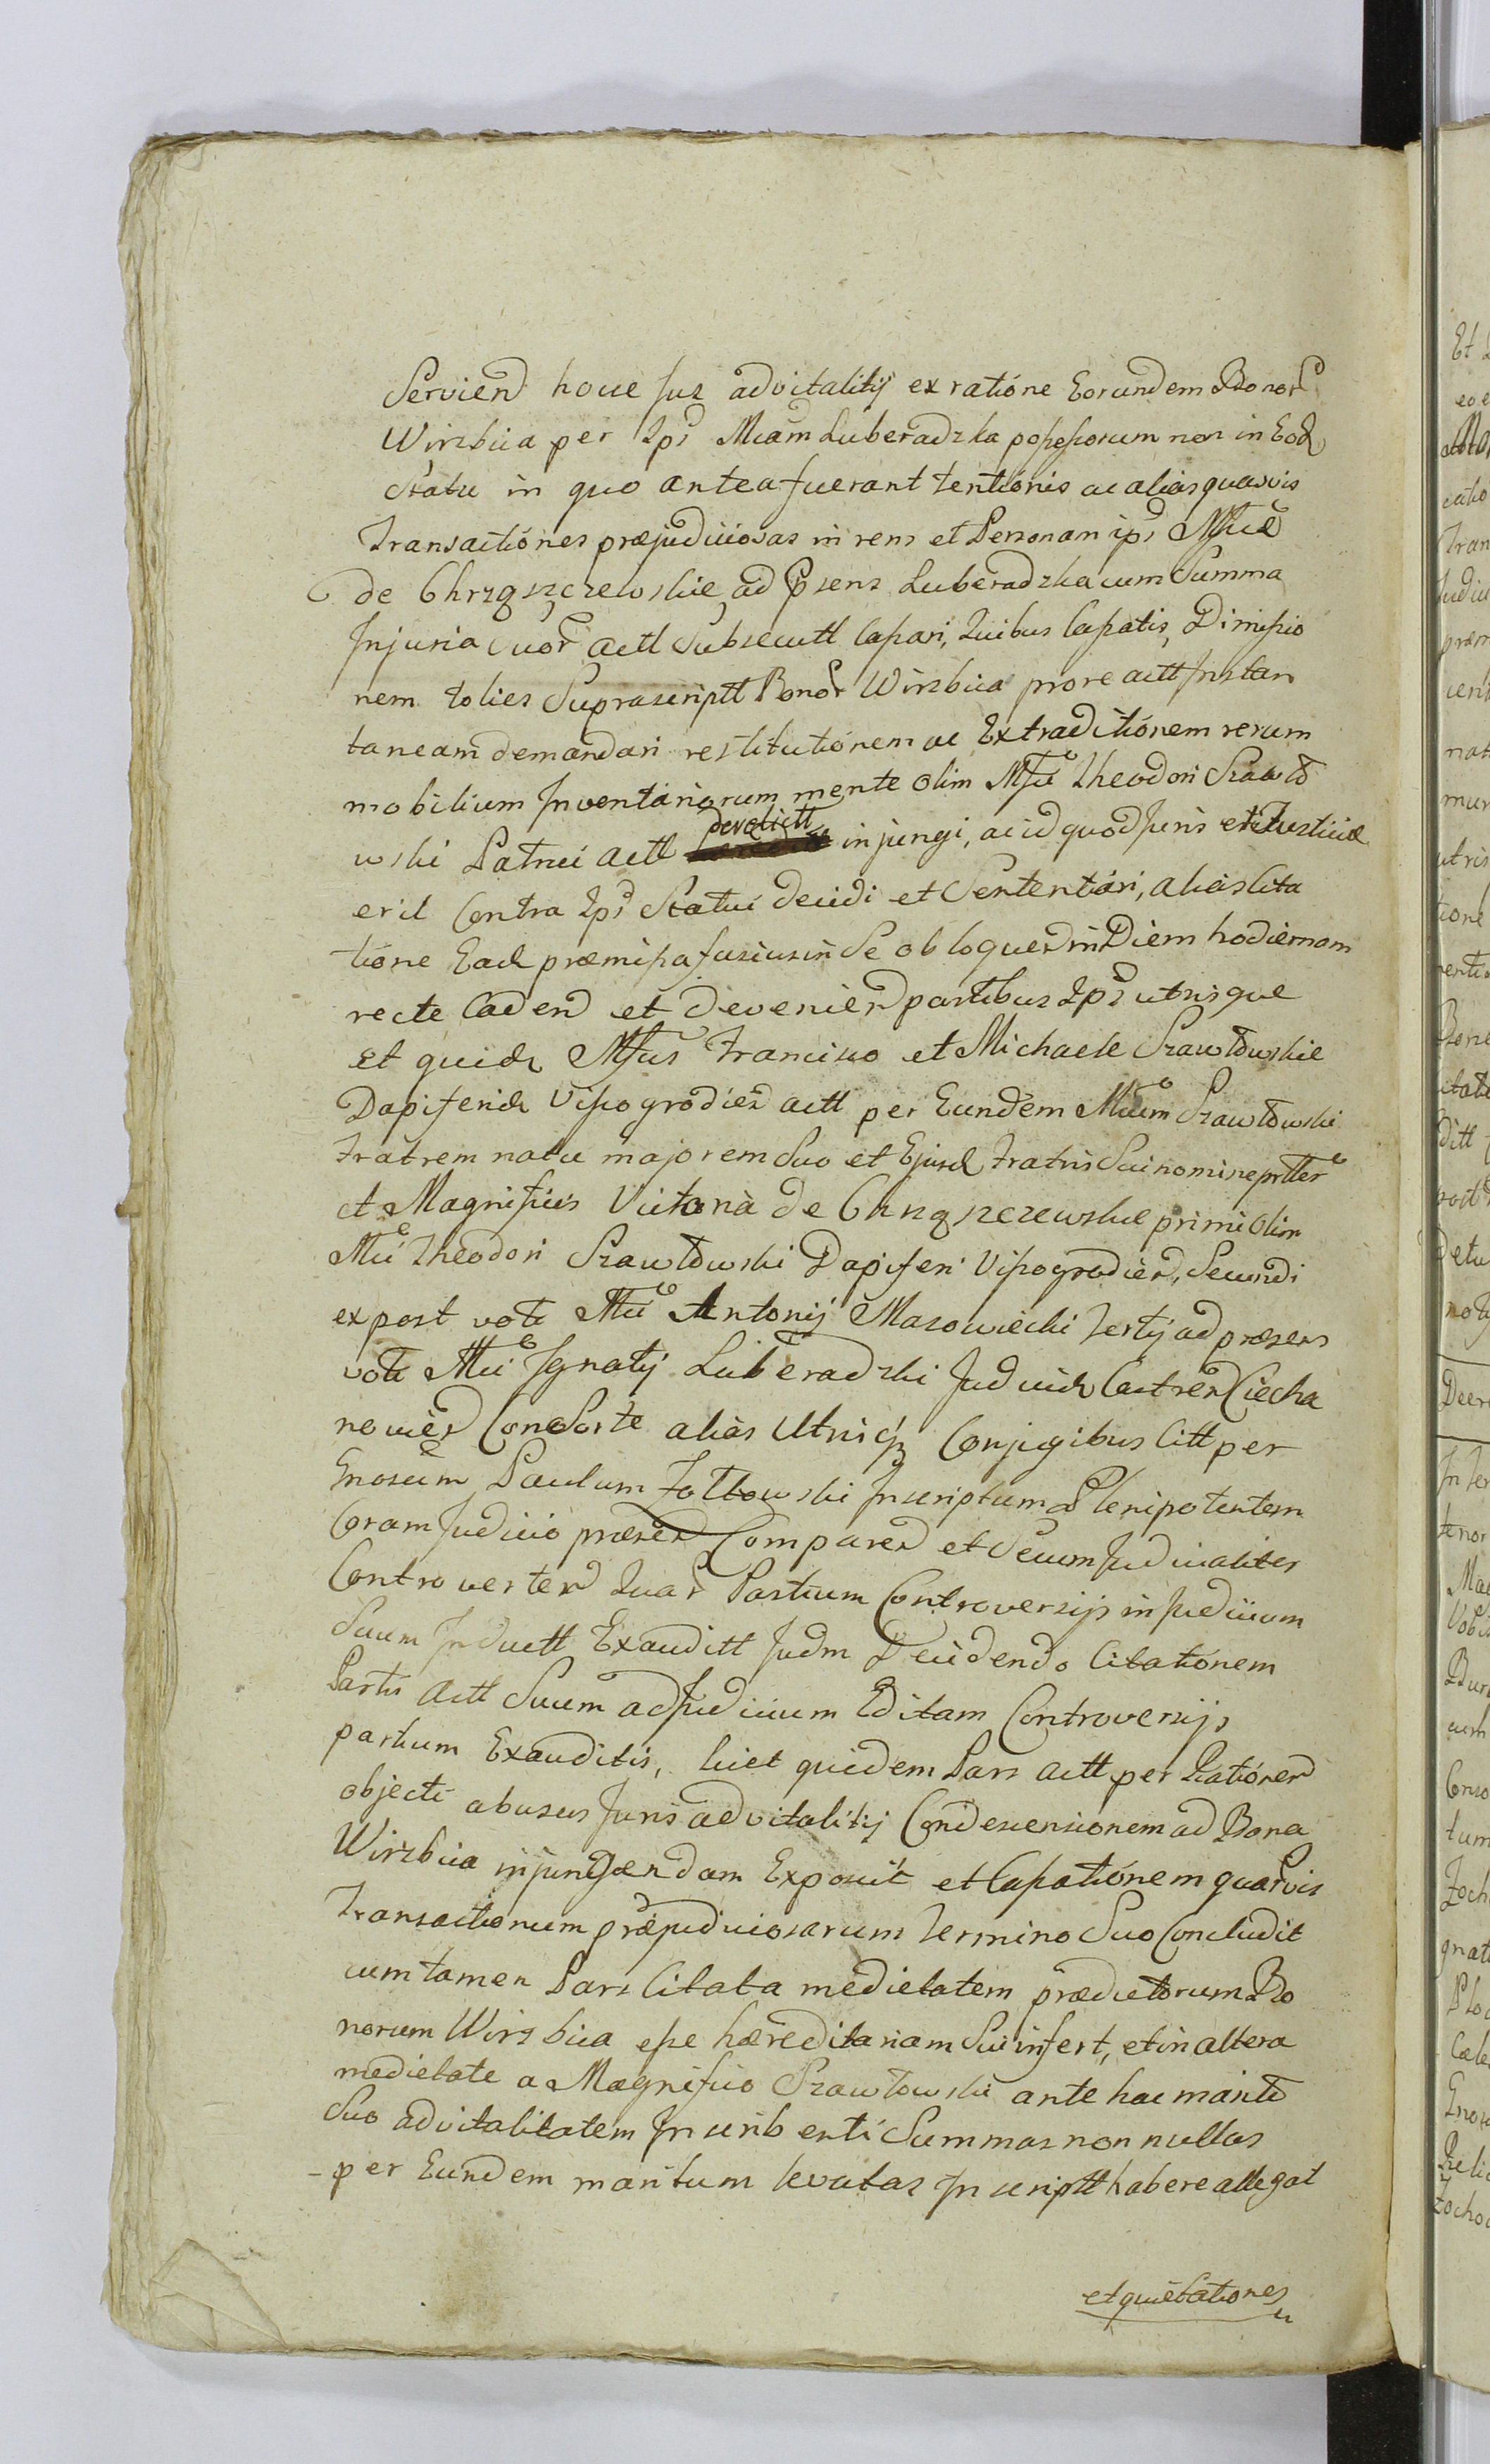 Serviend hocce Jus advitalitij ex ratióne Eorundem Bonor
Wirzbica per Ips Mcam Luberadzka possessorum non in Eod
Statu in quo antea fuerant tentiónis ac alias quasvis
Transactiónes præjudiciosas in rem et Personam ips Mfcæ
de Chrząszczewskie ad Psens Luberadzka cum Summa
Injuria suor actt Subsecutt Cassari, Quibus Cassatis, Dimissio
nem toties Suprascriptt Bonor Wirzbica pro re actt Instan
taneam demandari restitutiónem ac Extraditiónem rerum
mobilium Inventáriorum mente olim Mfci Theodori Szawło
wski Patrui actt derelictt injungi, ac id quod Juris et Justiciæ
erit Contra Ips Statui decidi et Sententiari, alias Cita
tióne Ead præmissa fusius in Se obloquend in Diem hodiernam
recte Cadend et deveniend partibus Ips utrisque
et quid Mfcis Francisco et Michaele Szawłowskie
Dapiferid Vissogrodien actt per Eundem Mcum Szawłowski
Fratrem natu majorem Suo et Ejusd Fratris Sui nomine prtter
et Magnificis Victoria de Chrząszczewskie primi olim
Mci Theodori Szawłowski Dapiferi Vissogrodien, Secundi
ex post voti Mci Antonij Mazowiecki Tertij ad præsens
voti Mci Ignatij Luberadzki Judicid Castren Ciecha
novien Consorte alias Utrisq Conjugibus Citt per
Gnosum Paulum Żółtowski Inscriptum Plenipotentem
Coram Judicio præsen Comparen et Secum Judicialiter
Controverten Quar Partium Controversijs in Judicium
Suum Inductt Exauditt Judm Decidendo Citatiónem
Partis Actt Suum ad Judicium Editam Controversijs
partium Exauditis, licet quidem Pars actt per Ratiónem
objecti abusus Juris advitalitij Condescensionem ad Bona
Wirzbica injungendam Exposuit et Cassatiónem quarvis
Transactionum præjudiciosarum Termino Suo Concludit
cum tamen Pars Citata medietatem prædictorum Bo
norum Wirzbica esse hæreditariam Sui infert, et in altera
medietate a Magnifico Szawłowski ante hac marito
Suo advitalitatem Inscribenti Summas non nullas
per Eundem maritum levatas Inscriptt habere allegat
et quietationes